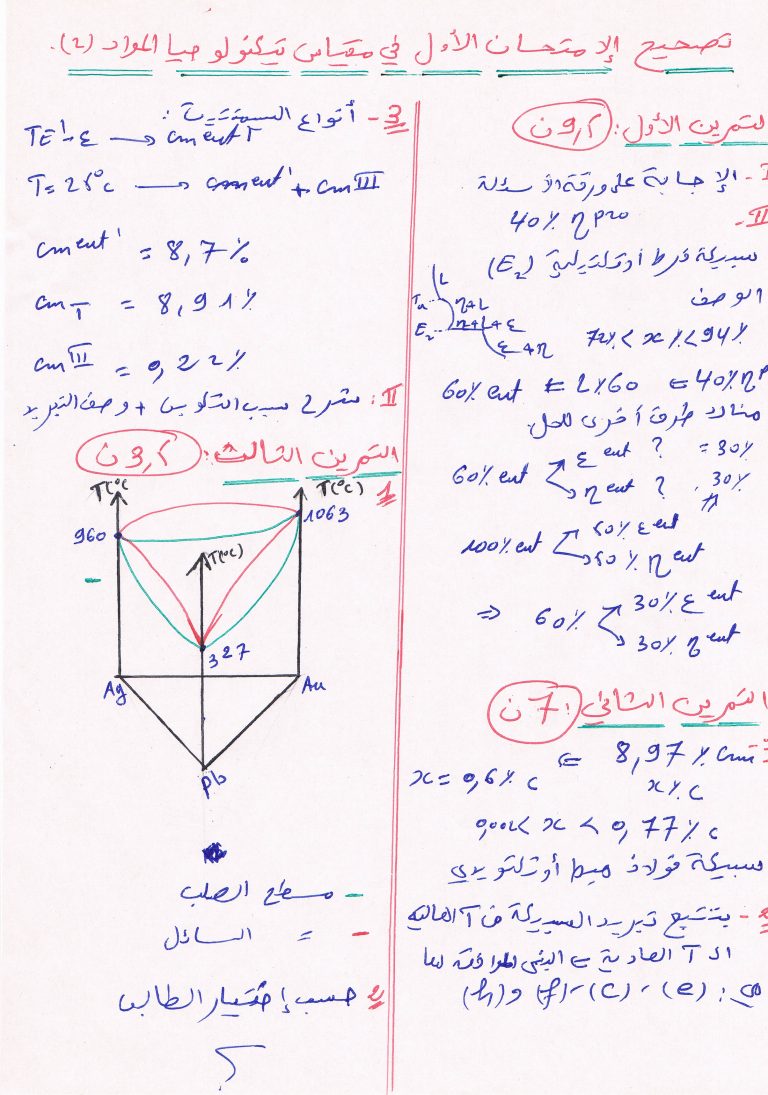 تصحيح الإمتحان الأول في مقياس تيكنولوجيا المواد (2).
التمرين الأول: 9,5 ن
I- الإجابة على ورقة الأسئلة
II-
40% η pro
سبيكة فرط أوتكتيكية (E₂)
الوصف
L
η+L
E₂ η+L+ε
ε+η
72% < x% < 94%
60% eut ⇐ 2x60 ⇐ 40% η
هناك طرق أخرى للحل.
60% eut
ε eut ? = 30%
η eut ? 30%
"
100% eut
50% ε eut
50% η eut
⇒ 60%
30% ε eut
30% η eut
التمرين الثاني: 7 ن
8,97% cm ⇐
x% c
x = 0,6% c
< x < 0,77% c
سبيكة فولاذ هيبو أوتكتويدي
2- بتتبع تبريد السبيكة من T العالية
الى T العادية ⇒ البنى الموافقة لها
هي: (e) - (c) - (f) و (h)
3- أنواع السمنتيت:
TE-ε → cment
T=25°c → cment' + cm III
cment' = 8,7%
cm = 8,91%
cm III = 0,22%
II: شرح سبب التكوين + وصف التبريد
التمرين الثالث: 3,5 ن
1
T(°c)
T(°c)
960
1063
T(°c)
327
Ag
Au
pb
- مسطح الصلب
- = السائل
2 حسب إختيار الطالب